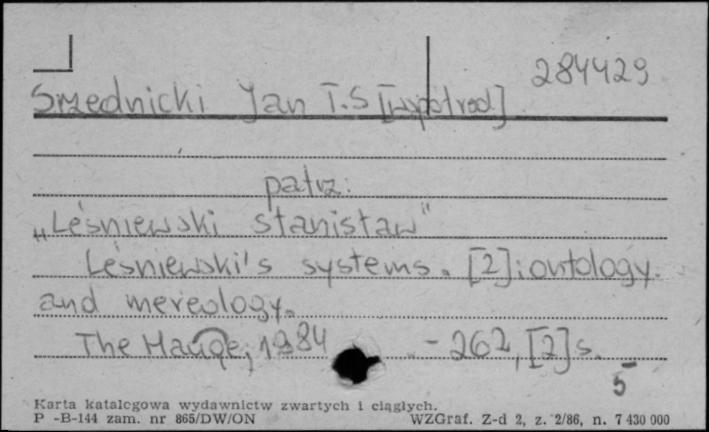 284429
Srzednicki Jan T.S [współred]
patrz:
„Leśniewski Stanisław"
Leśniewski's systems. [2]: ontology.
and mereology.
The Hauge, 1984 - 262, [2] s.
5
Karta katalogowa wydawnictw zwartych i ciągłych.
P -B-144 zam. nr 865/DW/ON WZGraf. Z-d 2, z. 2/86, n. 7 430 000